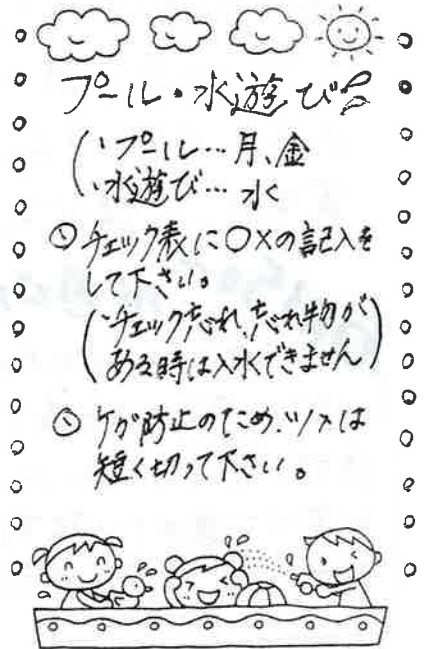 プール・水遊び
(・プール…月、金
・水遊び…水
◎チェック表に○×の記入を
して下さい。
(・チェック忘れ、忘れ物が
ある時は入水できません)
◎ケガ防止のため、ツメは
短く切って下さい。